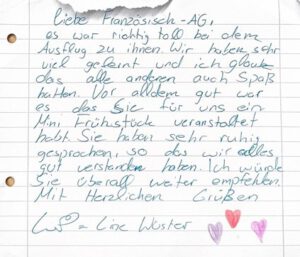 Liebe Französisch-AG,
es war richtig toll bei dem
Ausflug zu ihnen. Wir haben sehr
viel gelernt und ich glaube
das alle anderen auch Spaß
hatten. Vor alldem gut war
es das Sie für uns ein
Mini Frühstück veranstaltet
habt. Sie haben sehr ruhig
gesprochen, so das wir alles
gut verstanden haben. Ich würde
Sie überall weiter empfehlen.
Mit Herzlichen Grüßen
= Line Wüster